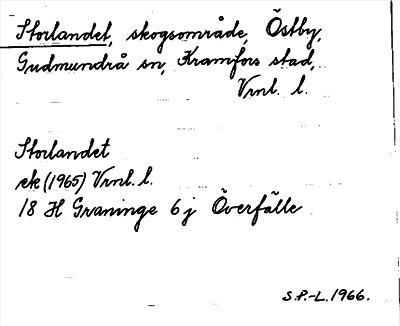 Storlandet, skogsområde, Östby,
Gudmundrå sn, Kramfors stad,
Vrnl. l.
Storlandet
ek (1965) Vrnl. l.
18 H Graninge 6 j Överfälle
S.P.-L. 1966.